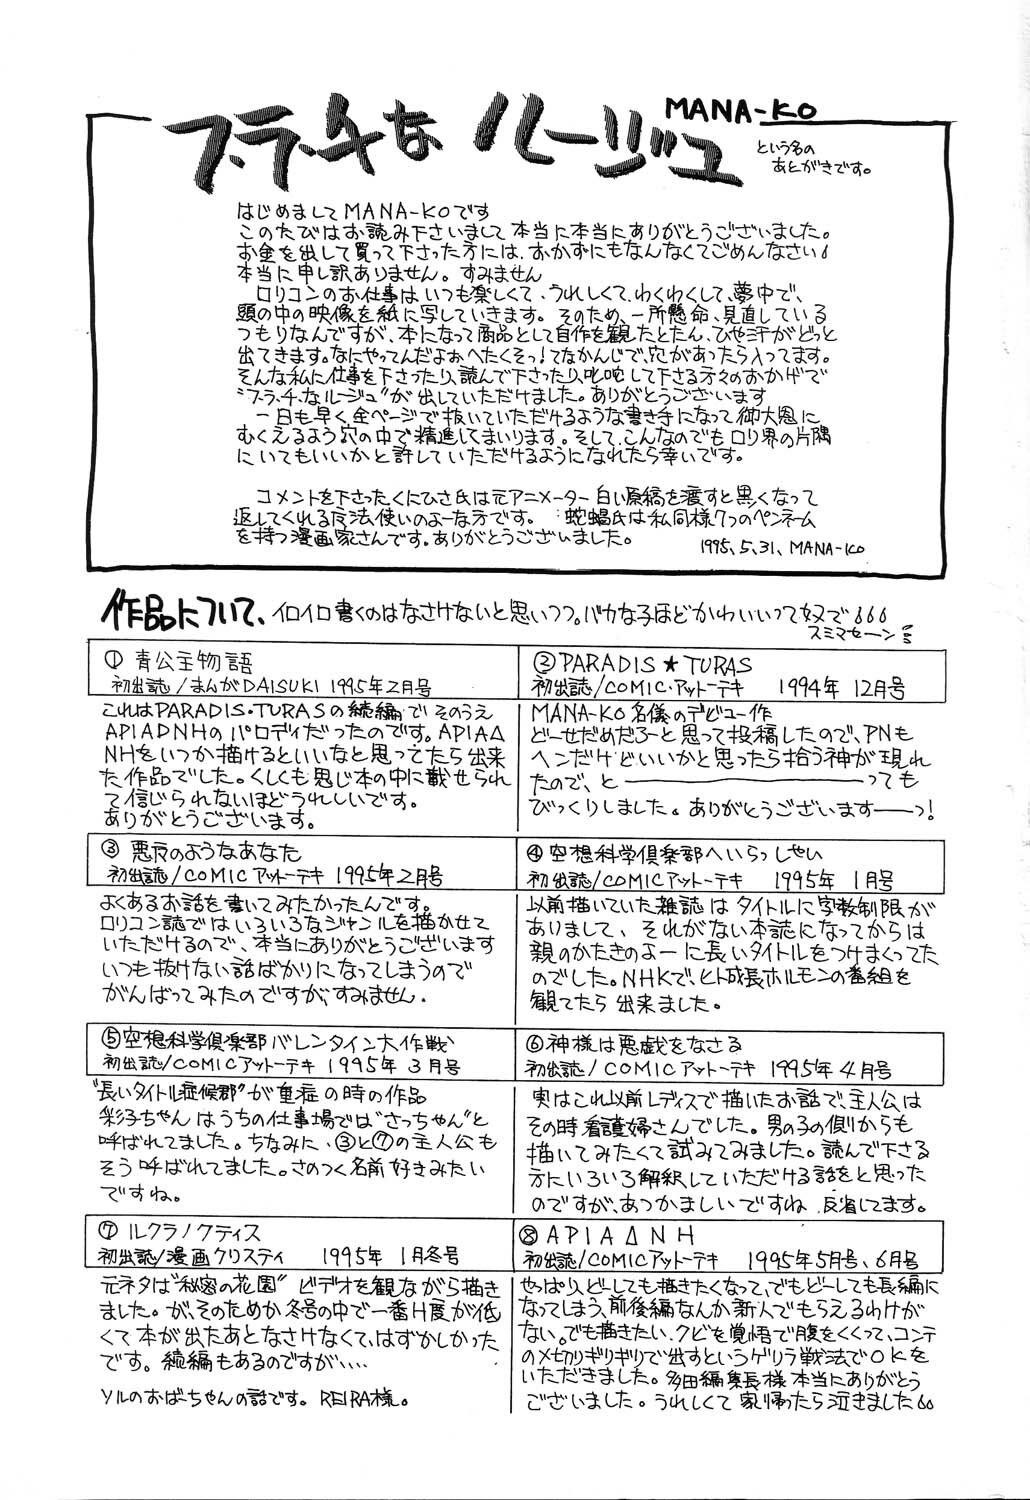 フ・ラ・チな ルージュ
MANA-KO
という名の
あとがきです。
はじめましてMANA-KOです
このたびはお読み下さいまして本当に本当にありがとうございました。
お金を出して買って下さった方には、おかずにもなんなくてごめんなさい
本当に申し訳ありません。すみません
ロリコンのお仕事はいつも楽しくて、うれしくて、わくわくして、夢中で、
頭の中の映像を紙に写していきます。そのため、一所懸命、見直している
つもりなんですが、本になって商品として自作を観たとたん、ひや汗がどっと
出てきます。なにやってんだよぉへたくそっ!てなかんじで、穴があったら入ってます。
そんな私に仕事を下さったり、読んで下さったり、叱咤して下さる方々のおかげで
"フ・ラ・チ・なルージュ"が出していただけました。ありがとうございます
一日も早く全ページで抜いていただけるような書き手になって御大恩に
むくえるよう穴の中で精進してまいります。そして、こんなのでもロリ界の片隅
にいてもいいかと許していただけるようになれたら幸いです。
コメントを下さったくにひさ氏は元アニメーター白い原稿を渡すと黒くなって
返してくれる魔法使いのよーな方です。蛇蝎氏は私同様7つのペンネーム
を持つ漫画家さんです。ありがとうございました。
1995、5、31、MANA-KO
作品について、イロイロ書くのはなさけないと思いつつ。バカな子ほどかわいいって奴で
スミマセーン
① 青公主物語
初出誌/まんがDAISUKI 1995年2月号
これはPARADIS・TURASの続編で そのうえ
APIAΔNHのパロディだったのです。APIAΔ
NHをいつか描けるといいなと思ってたら出来
た作品でした。くしくも同じ本の中に載せられ
て信じられないほどうれしいです。
ありがとうございます。
② PARADIS★TURAS
初出誌/COMIC・アットーテキ 1994年 12月号
MANA-KO名儀のデビュー作
どーせだめだろーと思って投稿したので、PNも
ヘンだけどいいかと思ったら拾う神が現れ
たので、と―――――――っても
びっくりしました。ありがとうございます――っ!
③ 悪夜のようなあなた
初出誌/COMICアットーテキ 1995年2月号
よくあるお話を書いてみたかったんです。
ロリコン誌ではいろいろなジャンルを描かせて
いただけるので、本当にありがとうございます
いつも抜けない話ばかりになってしまうので
がんばってみたのですが、すみません.
④ 空想科学倶楽部へいらっしゃい
初出誌/COMICアットーテキ 1995年 1月号
以前描いていた雑誌はタイトルに字数制限が
ありまして、それがない本誌になってからは
親のかたきのよーに長いタイトルをつけまくってた
のでした。NHKで、ヒト成長ホルモンの番組を
観てたら出来ました。
⑤ 空想科学倶楽部バレンタイン大作戦
初出誌/COMICアットーテキ 1995年 3月号
"長いタイトル症候群"が重症の時の作品
彩子ちゃんはうちの仕事場では"さっちゃん"と
呼ばれてました。ちなみに、③と⑦の主人公も
そう呼ばれてました。さのつく名前好きみたい
ですね。
⑥ 神様は悪戯をなさる
初出誌/COMICアットーテキ 1995年4月号
実はこれ以前レディスで描いたお話で、主人公は
その時看護婦さんでした。男の子の側からも
描いてみたくて試みてみました。読んで下さる
方にいろいろ解釈していただける話をと思った
のですが、あつかましいですね 反省してます。
⑦ ルクラノクティス
初出誌/漫画クリスティ 1995年 1月冬号
元ネタは"秘密の花園" ビデオを観ながら描き
ました。が、そのためか冬号の中で一番H度が低
くて本が出たあとなさけなくて、はずかしかった
です。続編もあるのですが‥‥
ソルのおばーちゃんの話です。REIRA様。
⑧ APIAΔNH
初出誌/COMICアットーテキ 1995年5月号、6月号
やっぱり、どーしても描きたくなって、でもどーしても長編に
なってしまう、前後編なんか新人でもらえるわけが
ない。でも描きたい、クビを覚悟で腹をくくって、コンテ
の〆切りギリギリで出すというゲリラ戦法でOKを
いただきました。多田編集長様本当にありがとう
ございました。うれしくて家帰ったら泣きました